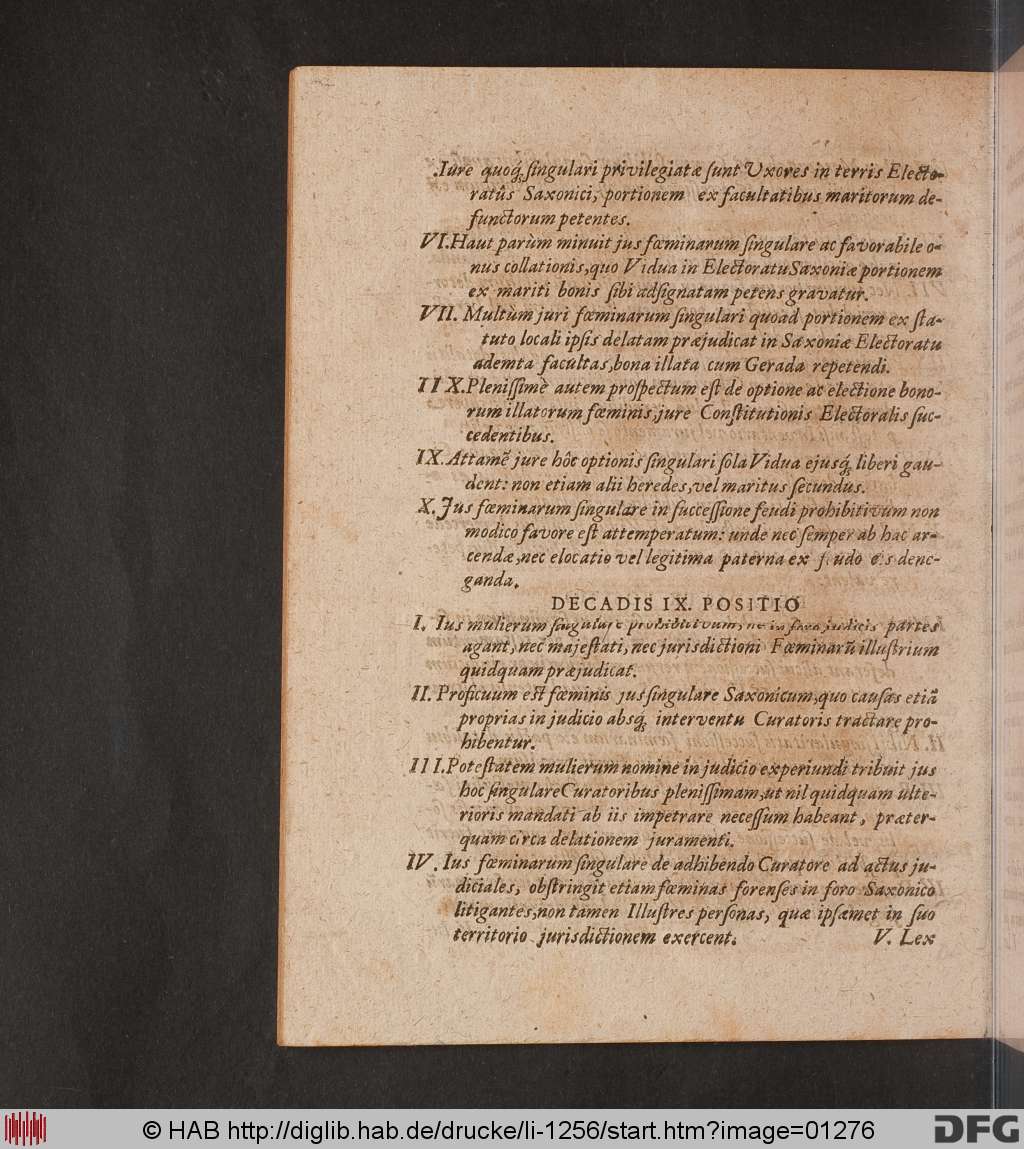 .Iure quoq́; ſingulari privilegiatæ ſunt Uxores in terris Electo-
ratûs Saxonici, portionem ex facultatibus maritorum de-
functorum petentes.
VI.Haut parùm minuit jus fœminarum ſingulare ac favorabile o-
nus collationis,quo Vidua in Electoratu Saxoniæ portionem
ex mariti bonis ſibi adſignatam petens gravatur.
VII. Multùm juri fœminarum ſingulari quoad portionem ex ſta-
tuto locali ipſis delatam præjudicat in Saxoniæ Electoratu
ademta facultas,bona illata cum Gerada repetendi.
IIX.Pleniſſimè autem proſpectum eſt de optione ac electione bono-
rum illatorum fœminis,jure Conſtitutionis Electoralis ſuc-
cedentibus.
IX.Attamẽ jure hôc optionis ſingulari ſôla Vidua ejusq́; liberi gau-
dent: non etiam alii heredes,vel maritus ſecundus.
X.Jus fœminarum ſingulare in ſucceſſione feudi prohibitivum non
modico favore eſt attemperatum: unde nec ſemper ab hac ar-
cendæ,nec elocatio vel legitima paterna ex feudo eis dene-
ganda.
DECADIS IX. POSITIO
I. Ius mulierum ſingulare prohibitivum, ne in foro judicis partes
agant, nec majeſtati, nec jurisdictioni Fœminarũ illuſtrium
quidquam præjudicat.
II. Proficuum eſt fœminis jus ſingulare Saxonicum,quo cauſas etiã
proprias in judicio absq́; interventu Curatoris tractare pro-
hibentur.
III.Poteſtatem mulierum nomine in judicio experiundi tribuit jus
hoc ſingulare Curatoribus pleniſſimam,ut nil quidquam ulte-
rioris mandati ab iis impetrare neceſſum habeant, præter-
quam circa delationem juramenti.
IV. Ius fœminarum ſingulare de adhibendo Curatore ad actus ju-
diciales, obſtringit etiam fœminas forenſes in foro Saxonico
litigantes,non tamen Illuſtres perſonas, quæ ipſæmet in ſuo
territorio jurisdictionem exercent.
V. Lex
© HAB http://diglib.hab.de/drucke/li-1256/start.htm?image=01276
DFG